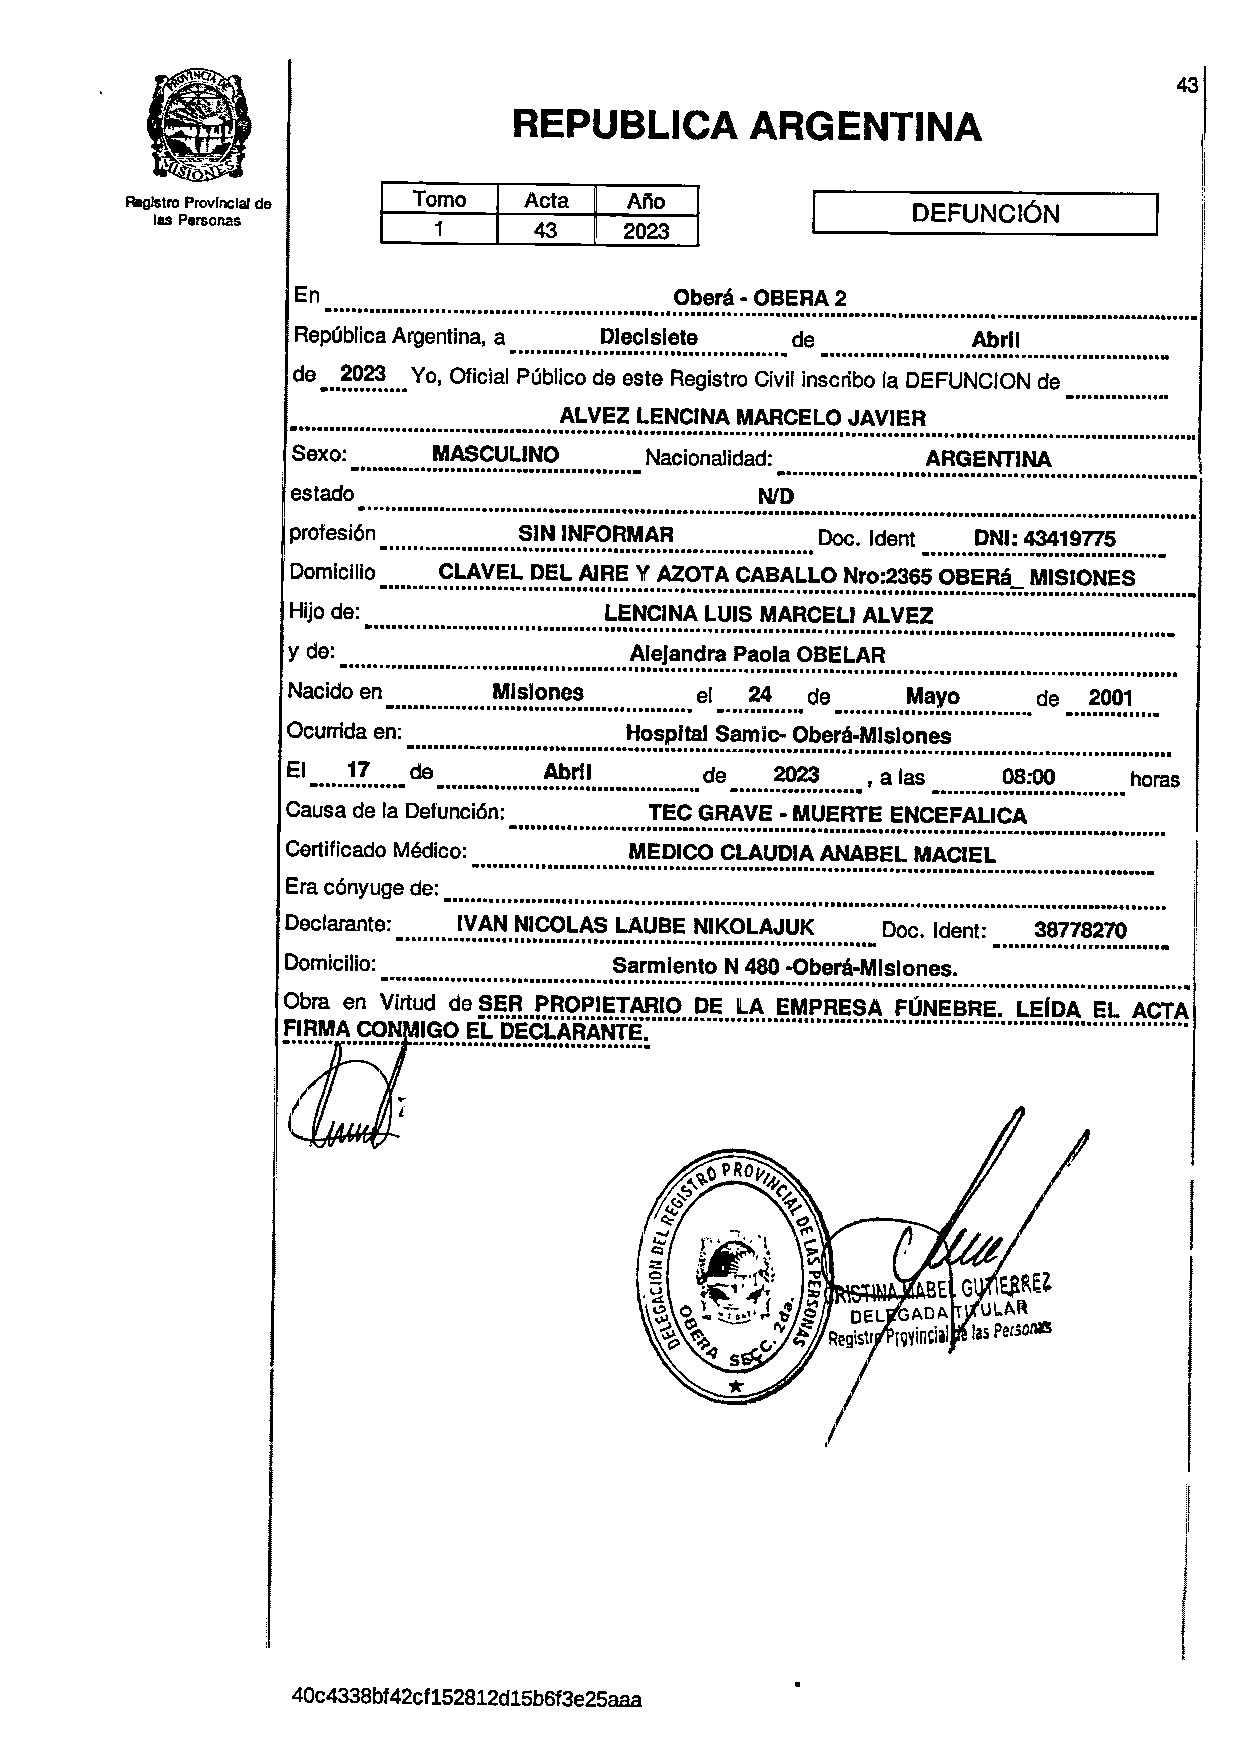 43
PROVINCIA DE
MISIONES
Registro Provincial de
las Personas
REPUBLICA ARGENTINA
Tomo Acta Año
1 43 2023
DEFUNCIÓN
En Oberá - OBERA 2
República Argentina, a Diecisiete de Abril
de 2023 Yo, Oficial Público de este Registro Civil inscribo la DEFUNCION de
ALVEZ LENCINA MARCELO JAVIER
Sexo: MASCULINO Nacionalidad: ARGENTINA
estado N/D
profesión SIN INFORMAR Doc. Ident DNI: 43419775
Domicilio CLAVEL DEL AIRE Y AZOTA CABALLO Nro:2365 OBERá_ MISIONES
Hijo de: LENCINA LUIS MARCELI ALVEZ
y de: Alejandra Paola OBELAR
Nacido en Misiones el 24 de Mayo de 2001
Ocurrida en: Hospital Samic- Oberá-Misiones
El 17 de Abril de 2023 , a las 08:00 horas
Causa de la Defunción: TEC GRAVE - MUERTE ENCEFALICA
Certificado Médico: MEDICO CLAUDIA ANABEL MACIEL
Era cónyuge de:
Declarante: IVAN NICOLAS LAUBE NIKOLAJUK Doc. Ident: 38778270
Domicilio: Sarmiento N 480 -Oberá-Misiones.
Obra en Virtud de SER PROPIETARIO DE LA EMPRESA FÚNEBRE. LEÍDA EL ACTA
FIRMA CONMIGO EL DECLARANTE.
DELEGACION DEL REGISTRO PROVINCIAL DE LAS PERSONAS
OBERA SECC. 2da.
RISTINA MABEL GUTIERREZ
DELEGADA TITULAR
Registro Provincial de las Personas
40c4338bf42cf152812d15b6f3e25aaa